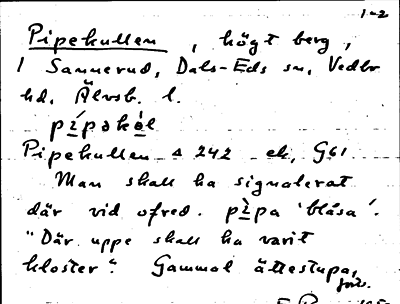 1-2
Pipekullen, högt berg,
i Sannerud, Dals-Eds sn, Vedbo
hd, Älvsb. l.
pìpəkòl
Pipekullen Δ 242 ek, G61
Man skall ha signalerat
där vid ofred. pìpa 'blåsa'.
"Där uppe skall ha varit
kloster". Gammal ättestupa,